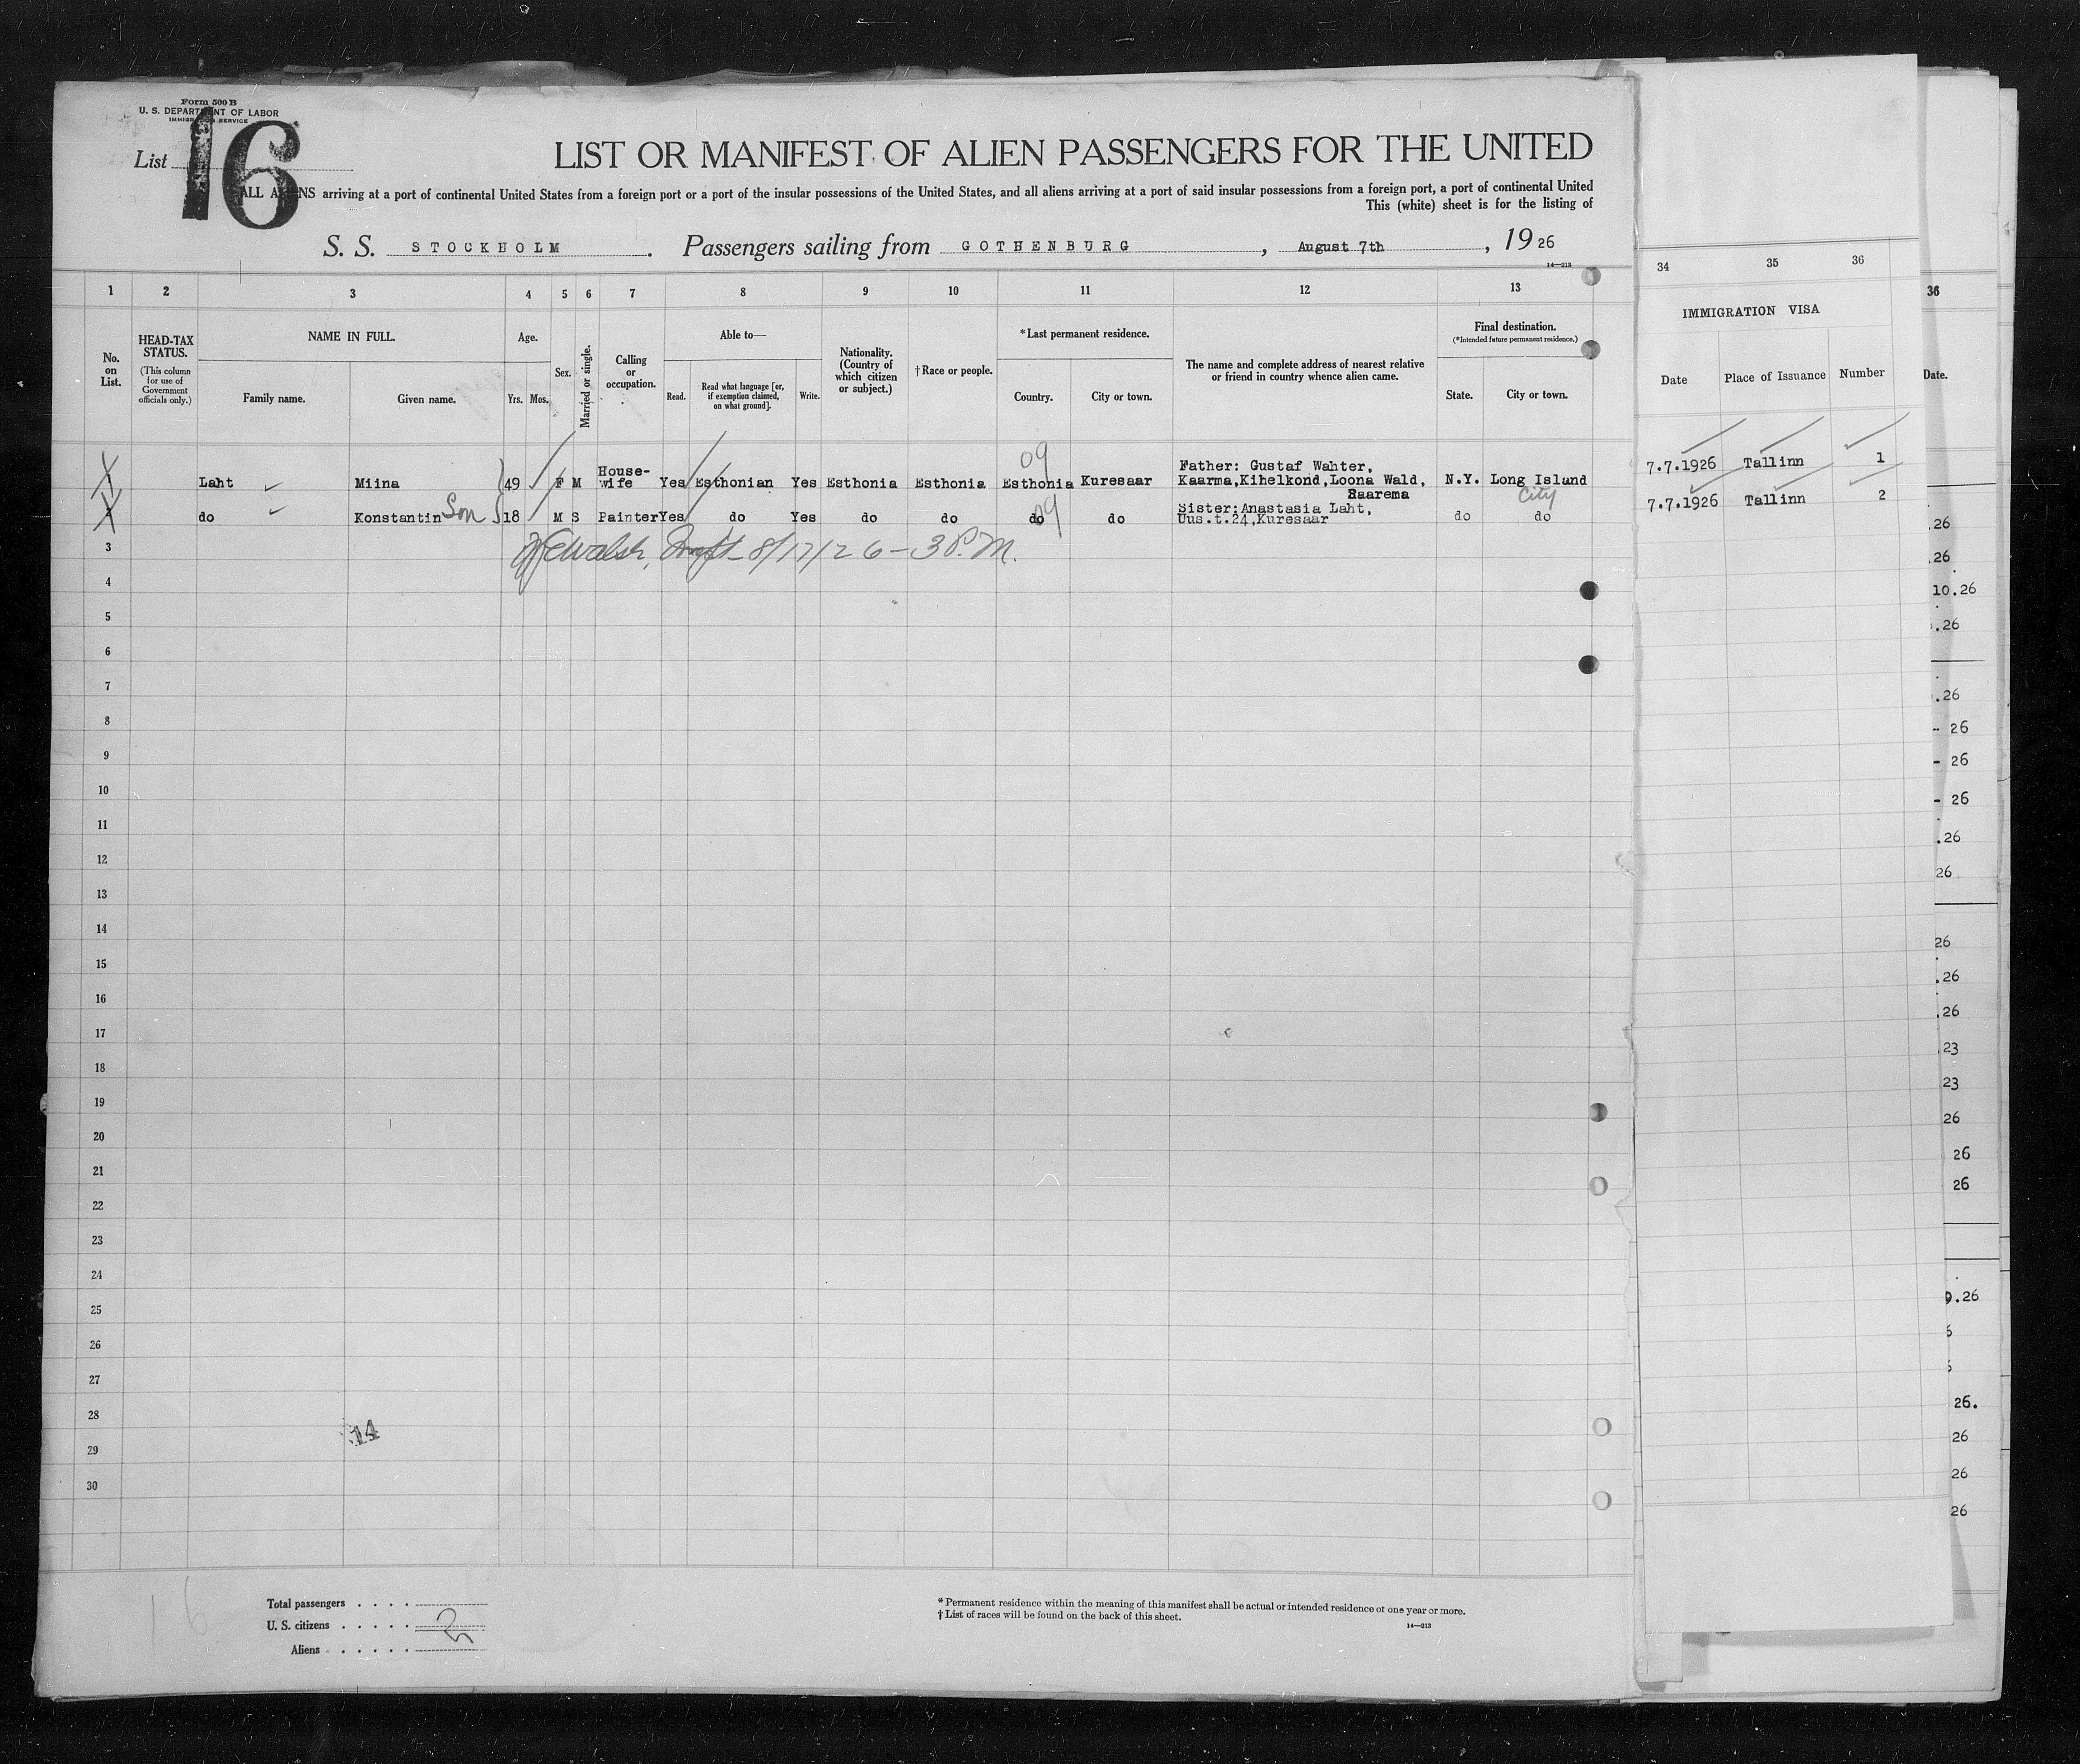 Form 500 B
U. S. DEPARTMENT OF LABOR
IMMIGRATION SERVICE
List
16
LIST OR MANIFEST OF ALIEN PASSENGERS FOR THE UNITED
ALL ALIENS arriving at a port of continental United States from a foreign port or a port of the insular possessions of the United States, and all aliens arriving at a port of said insular possessions from a foreign port, a port of continental United
This (white) sheet is for the listing of
S. S. STOCKHOLM. Passengers sailing from GOTHENBURG, August 7th, 1926
14—213
1 2 3 4 5 6 7 8 9 10 11 12 13
No. on List.
HEAD-TAX STATUS.
(This column for use of Government officials only.)
NAME IN FULL.
Family name. Given name.
Age.
Yrs. Mos.
Sex.
Married or single.
Calling or occupation.
Able to—
Read. Read what language [or, if exemption claimed, on what ground]. Write.
Nationality. (Country of which citizen or subject.)
†Race or people.
*Last permanent residence.
Country. City or town.
The name and complete address of nearest relative or friend in country whence alien came.
Final destination.
(*Intended future permanent residence.)
State. City or town.
34 35 36
IMMIGRATION VISA
Date Place of Issuance Number
36
Date.
09
1 Laht Miina 49 F M House-wife Yes Esthonian Yes Esthonia Esthonia Esthonia Kuresaar Father: Gustaf Wahter, Kaarma,Kihelkond,Loona Wald, Saarema N.Y. Long Island City 7.7.1926 Tallinn 1
2 do Konstantin Son 18 M S Painter Yes do Yes do do do 09 do Sister:Anastasia Laht, Uus.t.24,Kuresaar do do 7.7.1926 Tallinn 2
Walsh, 8/17/26 - 3 P.M.
3
4
5
6
7
8
9
10
11
12
13
14
15
16
17
18
19
20
21
22
23
24
25
26
27
28
29
30
14
.26
.26
10.26
.26
.26
- 26
- 26
- 26
.26
26
26
.26
.26
.23
23
26
26
26
.26
26.
26
26
26
16
Total passengers . . . .
U. S. citizens . . . . .
2
Aliens . . . . .
* Permanent residence within the meaning of this manifest shall be actual or intended residence of one year or more.
† List of races will be found on the back of this sheet.
14—213